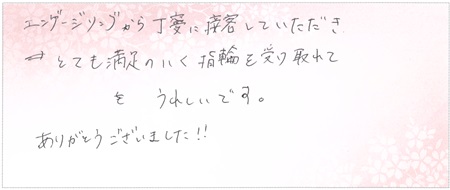 エンゲージリングから丁寧に接客していただき
とても満足のいく指輪を受け取れて
を うれしいです。
ありがとうございました!!